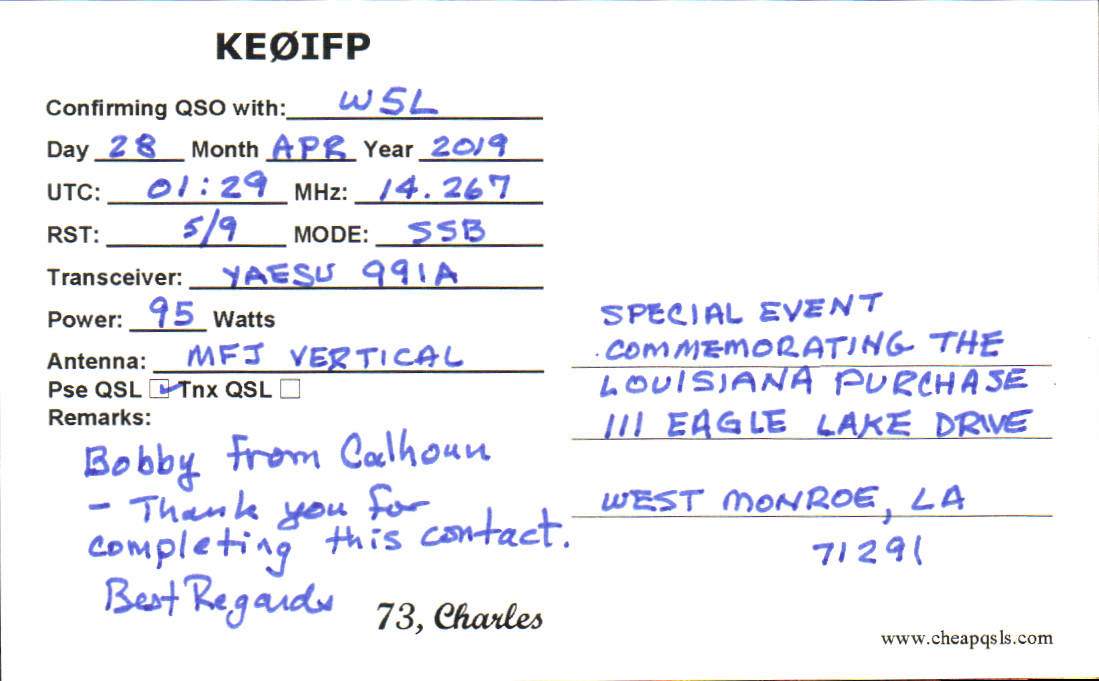 KEØIFP
Confirming QSO with: W5L
Day 28 Month APR Year 2019
UTC: 01:29 MHz: 14.267
RST: 5/9 MODE: SSB
Transceiver: YAESU 991A
Power: 95 Watts
Antenna: MFJ VERTICAL
Pse QSL ☑ Tnx QSL ☐
Remarks:
Bobby from Calhoun
- Thank you for
completing this contact.
Best Regards
73, Charles
SPECIAL EVENT
COMMEMORATING THE
LOUISIANA PURCHASE
111 EAGLE LAKE DRIVE
WEST MONROE, LA
71291
www.cheapqsls.com